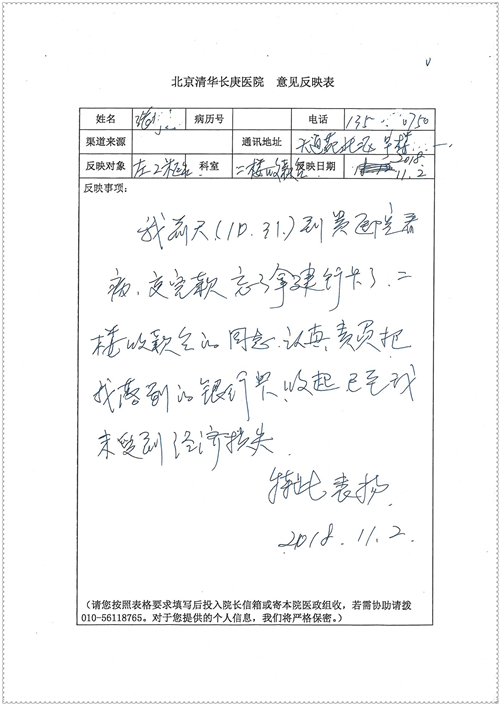 北京清华长庚医院 意见反映表
姓名 病历号 电话 135 0750
渠道来源 通讯地址 天通苑北
反映对象 科室 二楼收款台 反映日期 2018.11.2
反映事项：
我前天(10.31.)到贵医院看
病、交完款忘了拿建行卡了.二
楼收款台的同志.认真责员把
我落到的银行卡.收起
未受到经济损失.
特此表扬
2018.11.2.
(请您按照表格要求填写后投入院长信箱或寄本院医政组收，若需协助请拨
010-56118765。对于您提供的个人信息，我们将严格保密。)